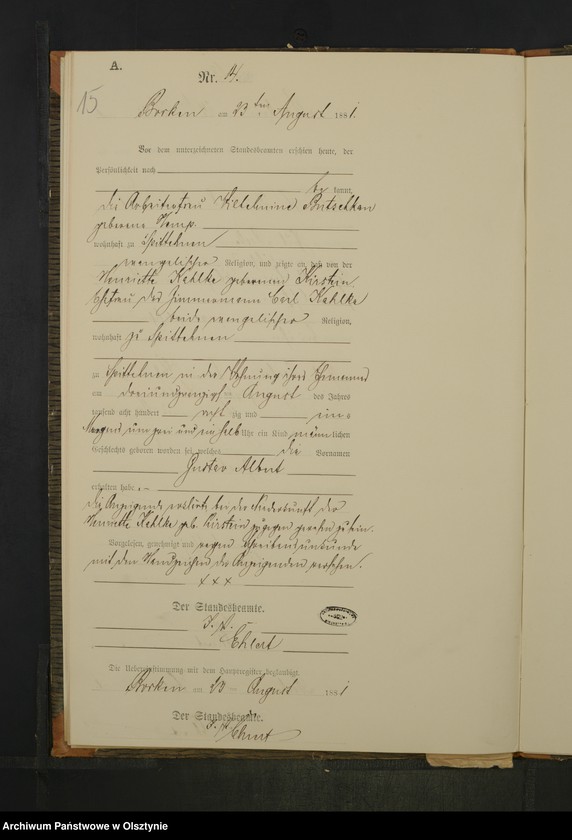 A.
Nr. 14.
15
Borken am 23 ten August 1881.
Vor dem unterzeichneten Standesbeamten erschien heute, der
Persönlichkeit nach
be kannt,
die Arbeiterfrau Wilhelmine
geborene Kemp.
wohnhaft zu Spittehnen
evangelischer Religion, und zeigte an, daß von der
Henriette Kahlke geborenen Kirstein
Ehefrau des Zimmermann Carl Kahlke
beide evangelischer Religion,
wohnhaft zu Spittehnen
zu Spittehnen in der Wohnung ihres Ehemannes
am dreiundzwanzigsten August des Jahres
tausend acht hundert acht zig und eins
Morgens um zwei und ein halb Uhr ein Kind männlichen
Geschlechts geboren worden sei, welches die Vornamen
Gustav Albert
erhalten habe. –
Die Anzeigende erklärte bei der Niederkunft der
Henriette Kahlke geb. Kirstein zugegen gewesen zu sein.
Vorgelesen, genehmigt und wegen Schreibensunkunde
mit den Handzeichen der Anzeigenden versehen.
x x x
Der Standesbeamte.
Ehlert
Die Uebereinstimmung mit dem Hauptregister beglaubigt
Borken am 23 August 1881
Der Standesbeamte.
Ehlert
Archiwum Państwowe w Olsztynie